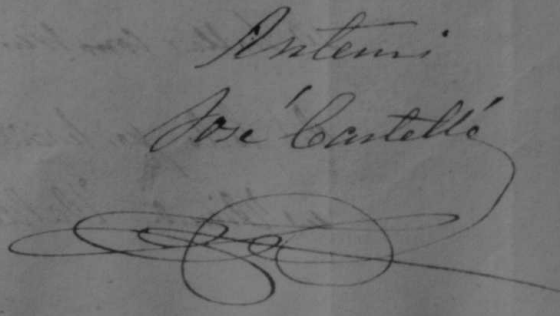 Antemi
José Castellé